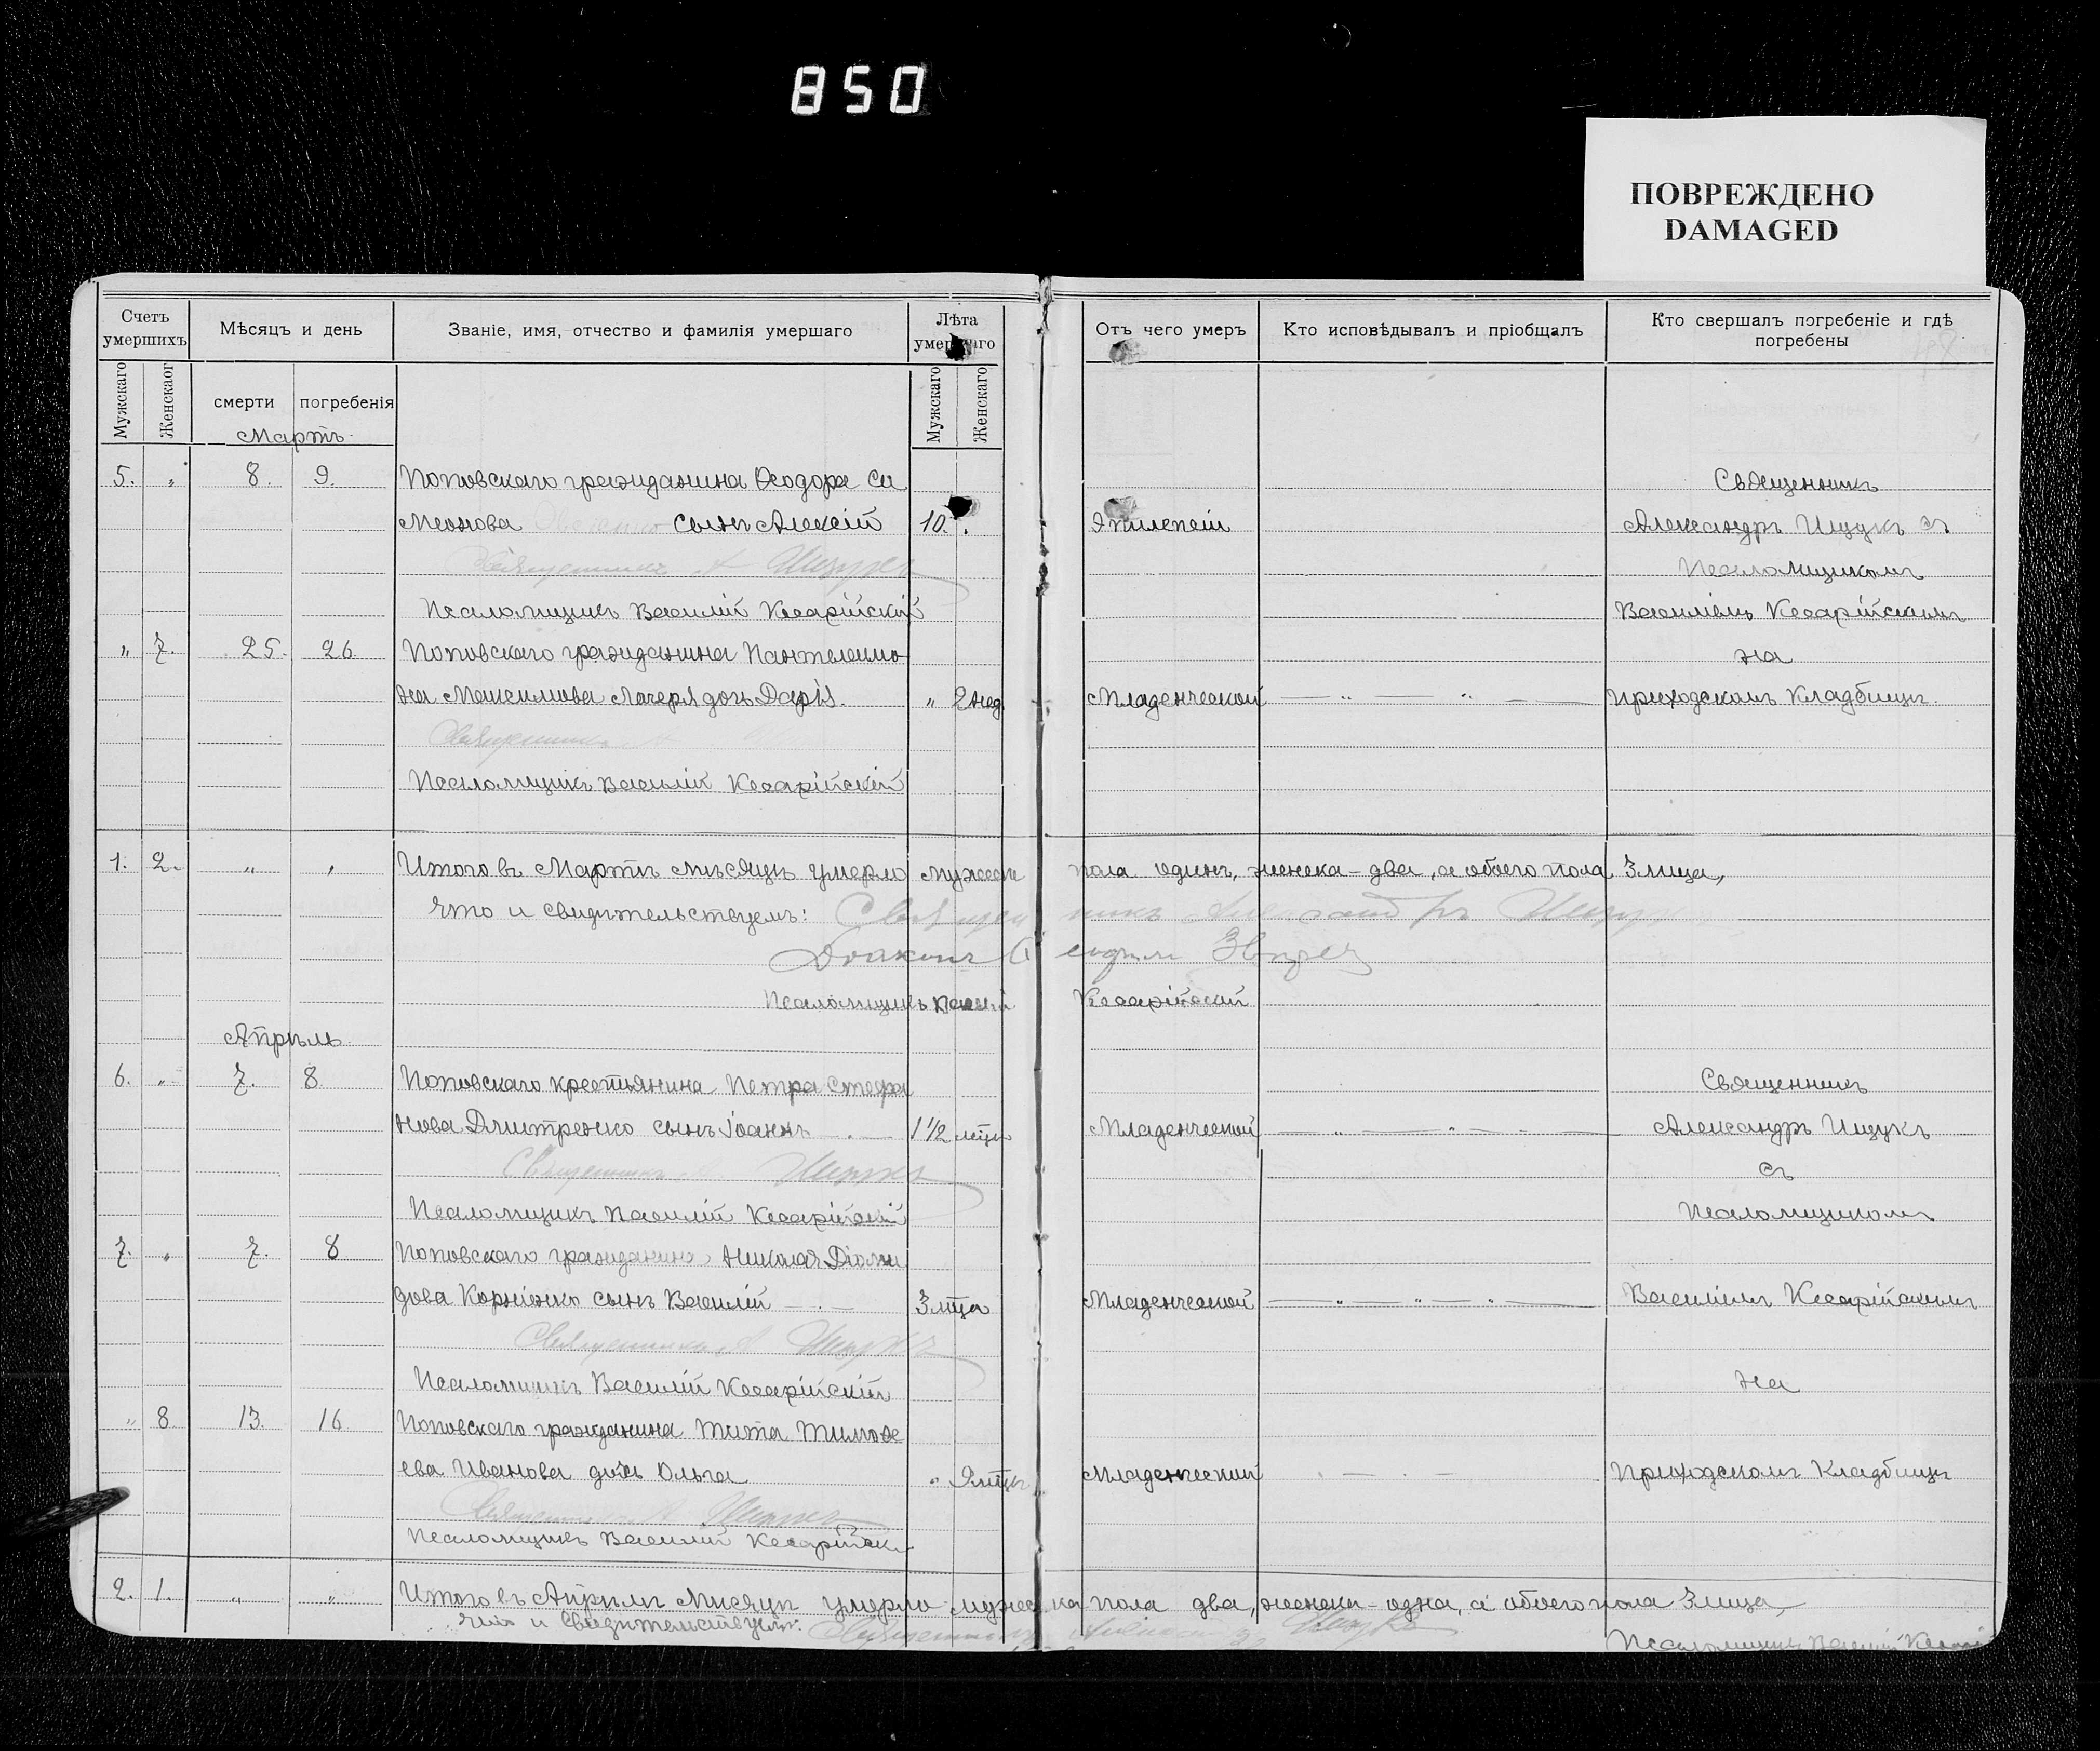 850
ПОВРЕЖДЕНО
DAMAGED
Счетъ умершихъ
Мѣсяцъ и день
Званіе, имя, отчество и фамилія умершаго
Лѣта умершаго
Отъ чего умеръ
Кто исповѣдывалъ и пріобщалъ
Кто свершалъ погребеніе и гдѣ погребены
Мужскаго
Женскаог
смерти
погребенія
Мужскаго
Женскаго
Мартъ
5. " 8. 9. Поповскаго гражданина Ѳеодора Си
Священникъ
меонова сынъ Алексій 10. Эпилепсіи Александръ Ищукъ съ
Священникъ А Ищукъ Псаломщикомъ
Псаломщикъ Василій Кесарійскій Василіемъ Кесарійскимъ
" 7. 25. 26. Поповскаго гражданина Пантелеимо на
на Максимова дочь Дарія. " 2 нед. Младенческой — " — " — — приходскомъ кладбищѣ.
Священникъ А
Псаломщикъ Василій Кесарійскій
1. 2. " " Итого въ Мартѣ мѣсяцѣ умерло мужеска пола одинъ, женска - два, а обоего пола 3 лица,
что и свидѣтельствуемъ: Священникъ Александръ Ищукъ
Діаконъ
Псаломщикъ Василій Кесарійскій
Апрѣль
6. " 7. 8. Поповскаго крестьянина Петра Стефа Священникъ
нова Дмитренко сынъ Іоаннъ — . — 1 1/2 Младенческой — " — " — " — Александръ Ищукъ
Священникъ А. Ищукъ съ
Псаломщикъ Василій Кесарійскій Псаломщикомъ
7. " 7. 8 Поповскаго гражданина Николая Діоми
дова Корніенко сынъ Василій — . — 3 мца Младенческой — " — " — " — Василіемъ Кесарійскимъ
Священникъ А Ищукъ
Псаломщикъ Василій Кесарійскій на
" 8 13. 16 Поповскаго гражданина Тита Тимоѳе
ева Иванова дочь Ольга " Младенческой . — . — Приходскомъ кладбищѣ
Священникъ А Ищукъ
Псаломщикъ Василій Кесарійскій
2. 1. " " Итого въ Апрѣлѣ Мѣсяцѣ умерло мужеска пола два, женска - одна, а обоего пола 3 лица,
что и свидѣтельствуемъ: Священникъ Александръ Ищукъ
Псаломщикъ Василій